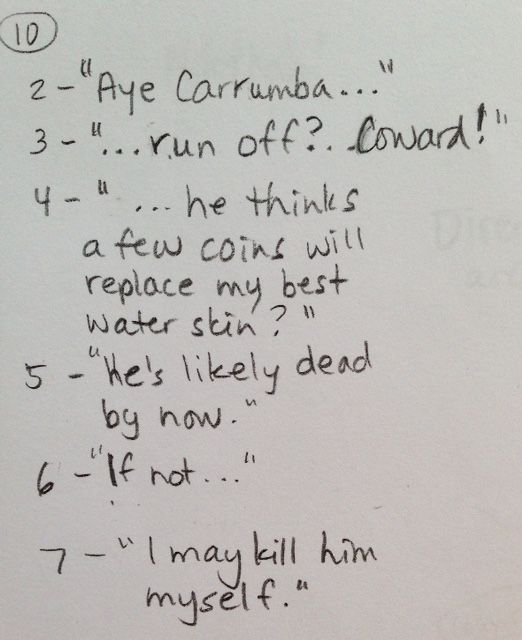 10
2 - "Aye Carrumba..."
3 - "...run off?...Coward!"
4 - "...he thinks
a few coins will
replace my best
water skin?"
5 - "he's likely dead
by now."
6 - "If not..."
7 - "I may kill him
myself."